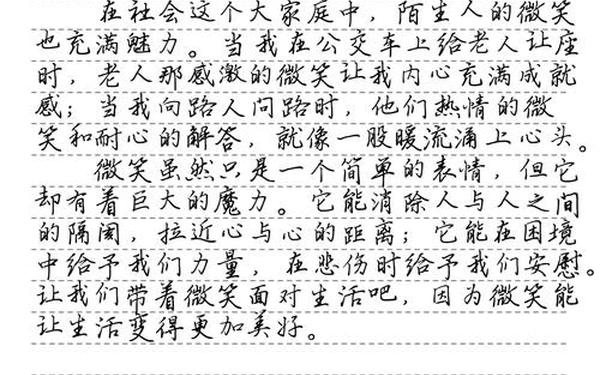 在社会这个大家庭中，陌生人的微笑
也充满魅力。当我在公交车上给老人让座
时，老人那感激的微笑让我内心充满成就
感；当我向路人问路时，他们热情的微
笑和耐心的解答，就像一股暖流涌上心头。
微笑虽然只是一个简单的表情，但它
却有着巨大的魔力。它能消除人与人之间
的隔阂，拉近心与心的距离；它能在困境
中给予我们力量，在悲伤时给予我们安慰。
让我们带着微笑面对生活吧，因为微笑能
让生活变得更加美好。